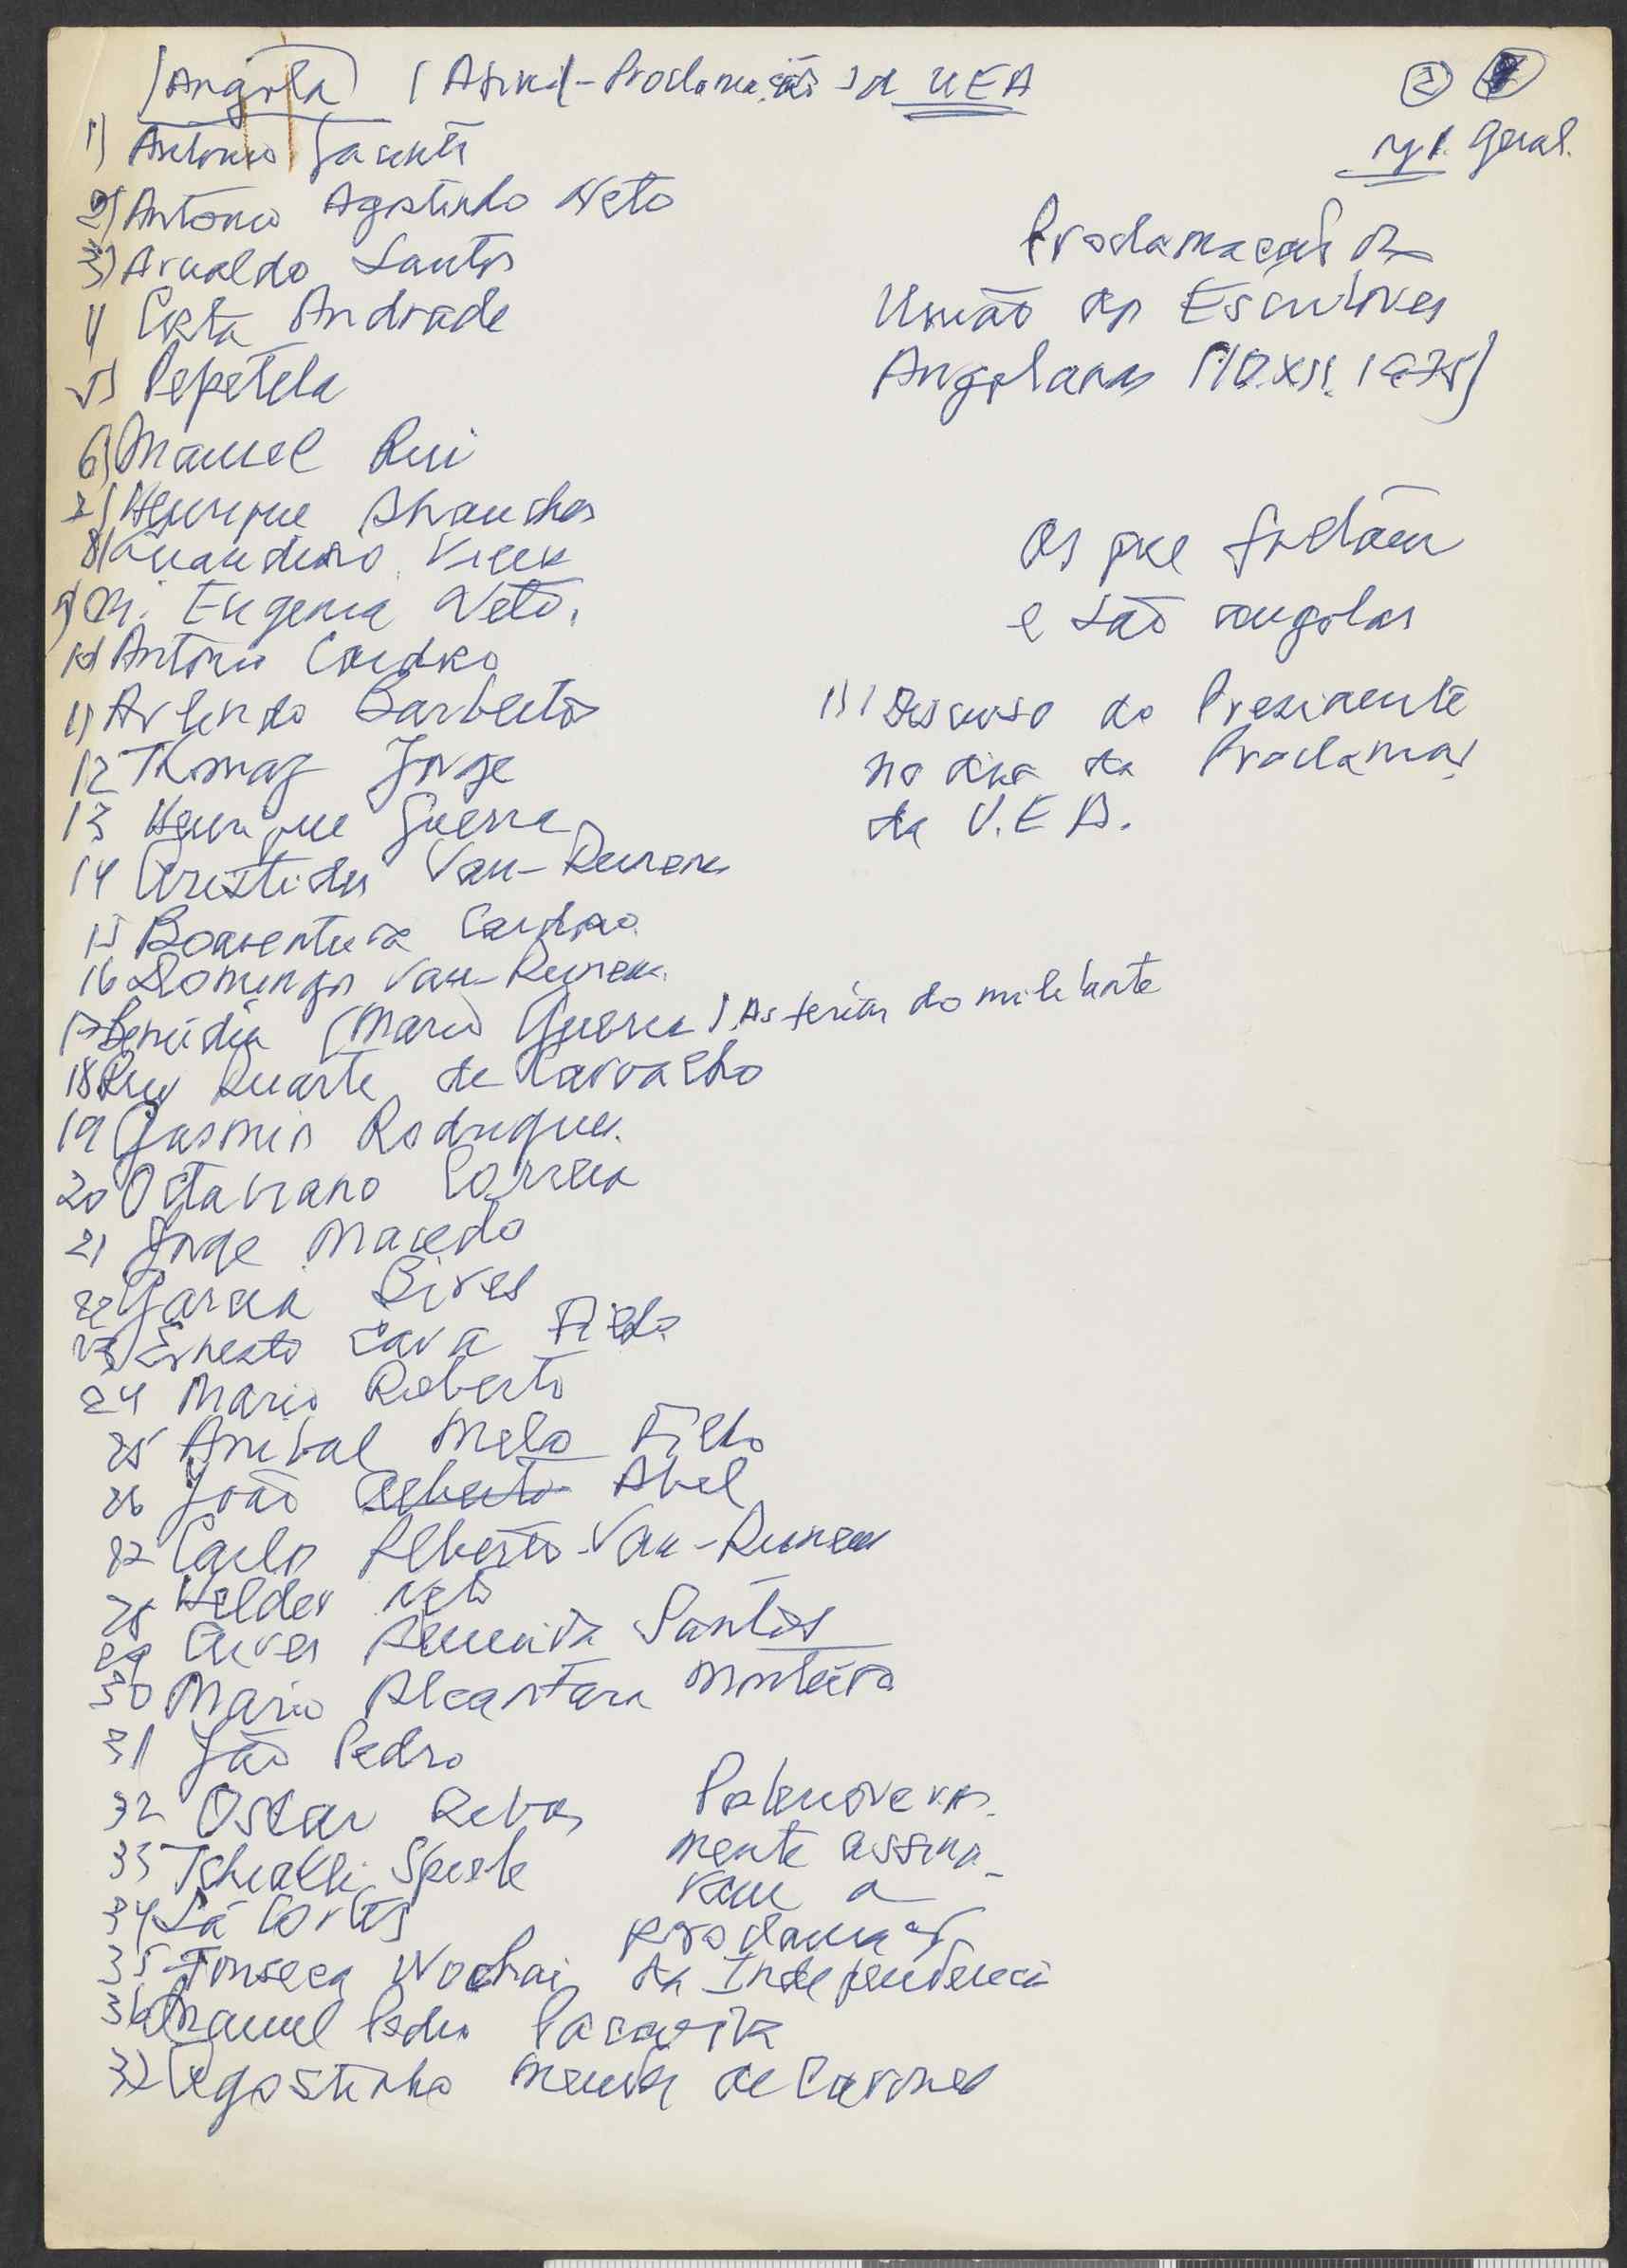 (Angola) (Assind-Proclamação) da UEA
② 
nº 1. Geral.
1) António Jacinto
2) António Agostinho Neto
3) Arnaldo Santos
4 Costa Andrade
5) Pepetela
6) Manuel Rui
7) Henrique Abranches
8) Luandino Vieira
9) M. Eugenia Neto.
10) António Cardoso
11) Arlindo Barbeitos
12 Thomaz Jorge
13 Henrique Guerra
14 Aristides Van-Dunem
15 Boaventura Cardoso
16 Domingos Van-Dunem.
17 Benúdia (Mario Guerra). As ferias do militante
18 Ruy Duarte de Carvalho
19 Jasmin Rodrigues.
20 Octaviano Correia
21 Jorge Macedo
22 Garcia Bires
23 Ernesto Lara Filho
24 Mario Roberto
25 Anibal Melo Filho
26 João Alberto Abel
27 Carlos Alberto Van-Dunem
28 Helder Neto
29 Aires Almeida Santos
30 Mario Alcantara Monteiro
31 João Pedro
32 Oscar Ribas
33 Tchikakli Spiele
34 Sá Cortes
35 Fonseca Wochai
36 Manuel Pedro Pacavira
37 Agostinho Mendes de Carvones
Proclamação da
União dos Escritores
Angolanos (10.XII.1975)
Os que faltam
e são angolas
1) Discurso do Presidente
no dia da Proclamaç
da U.E.A.
mente assina-
ram a
proclamaç
da Independencia